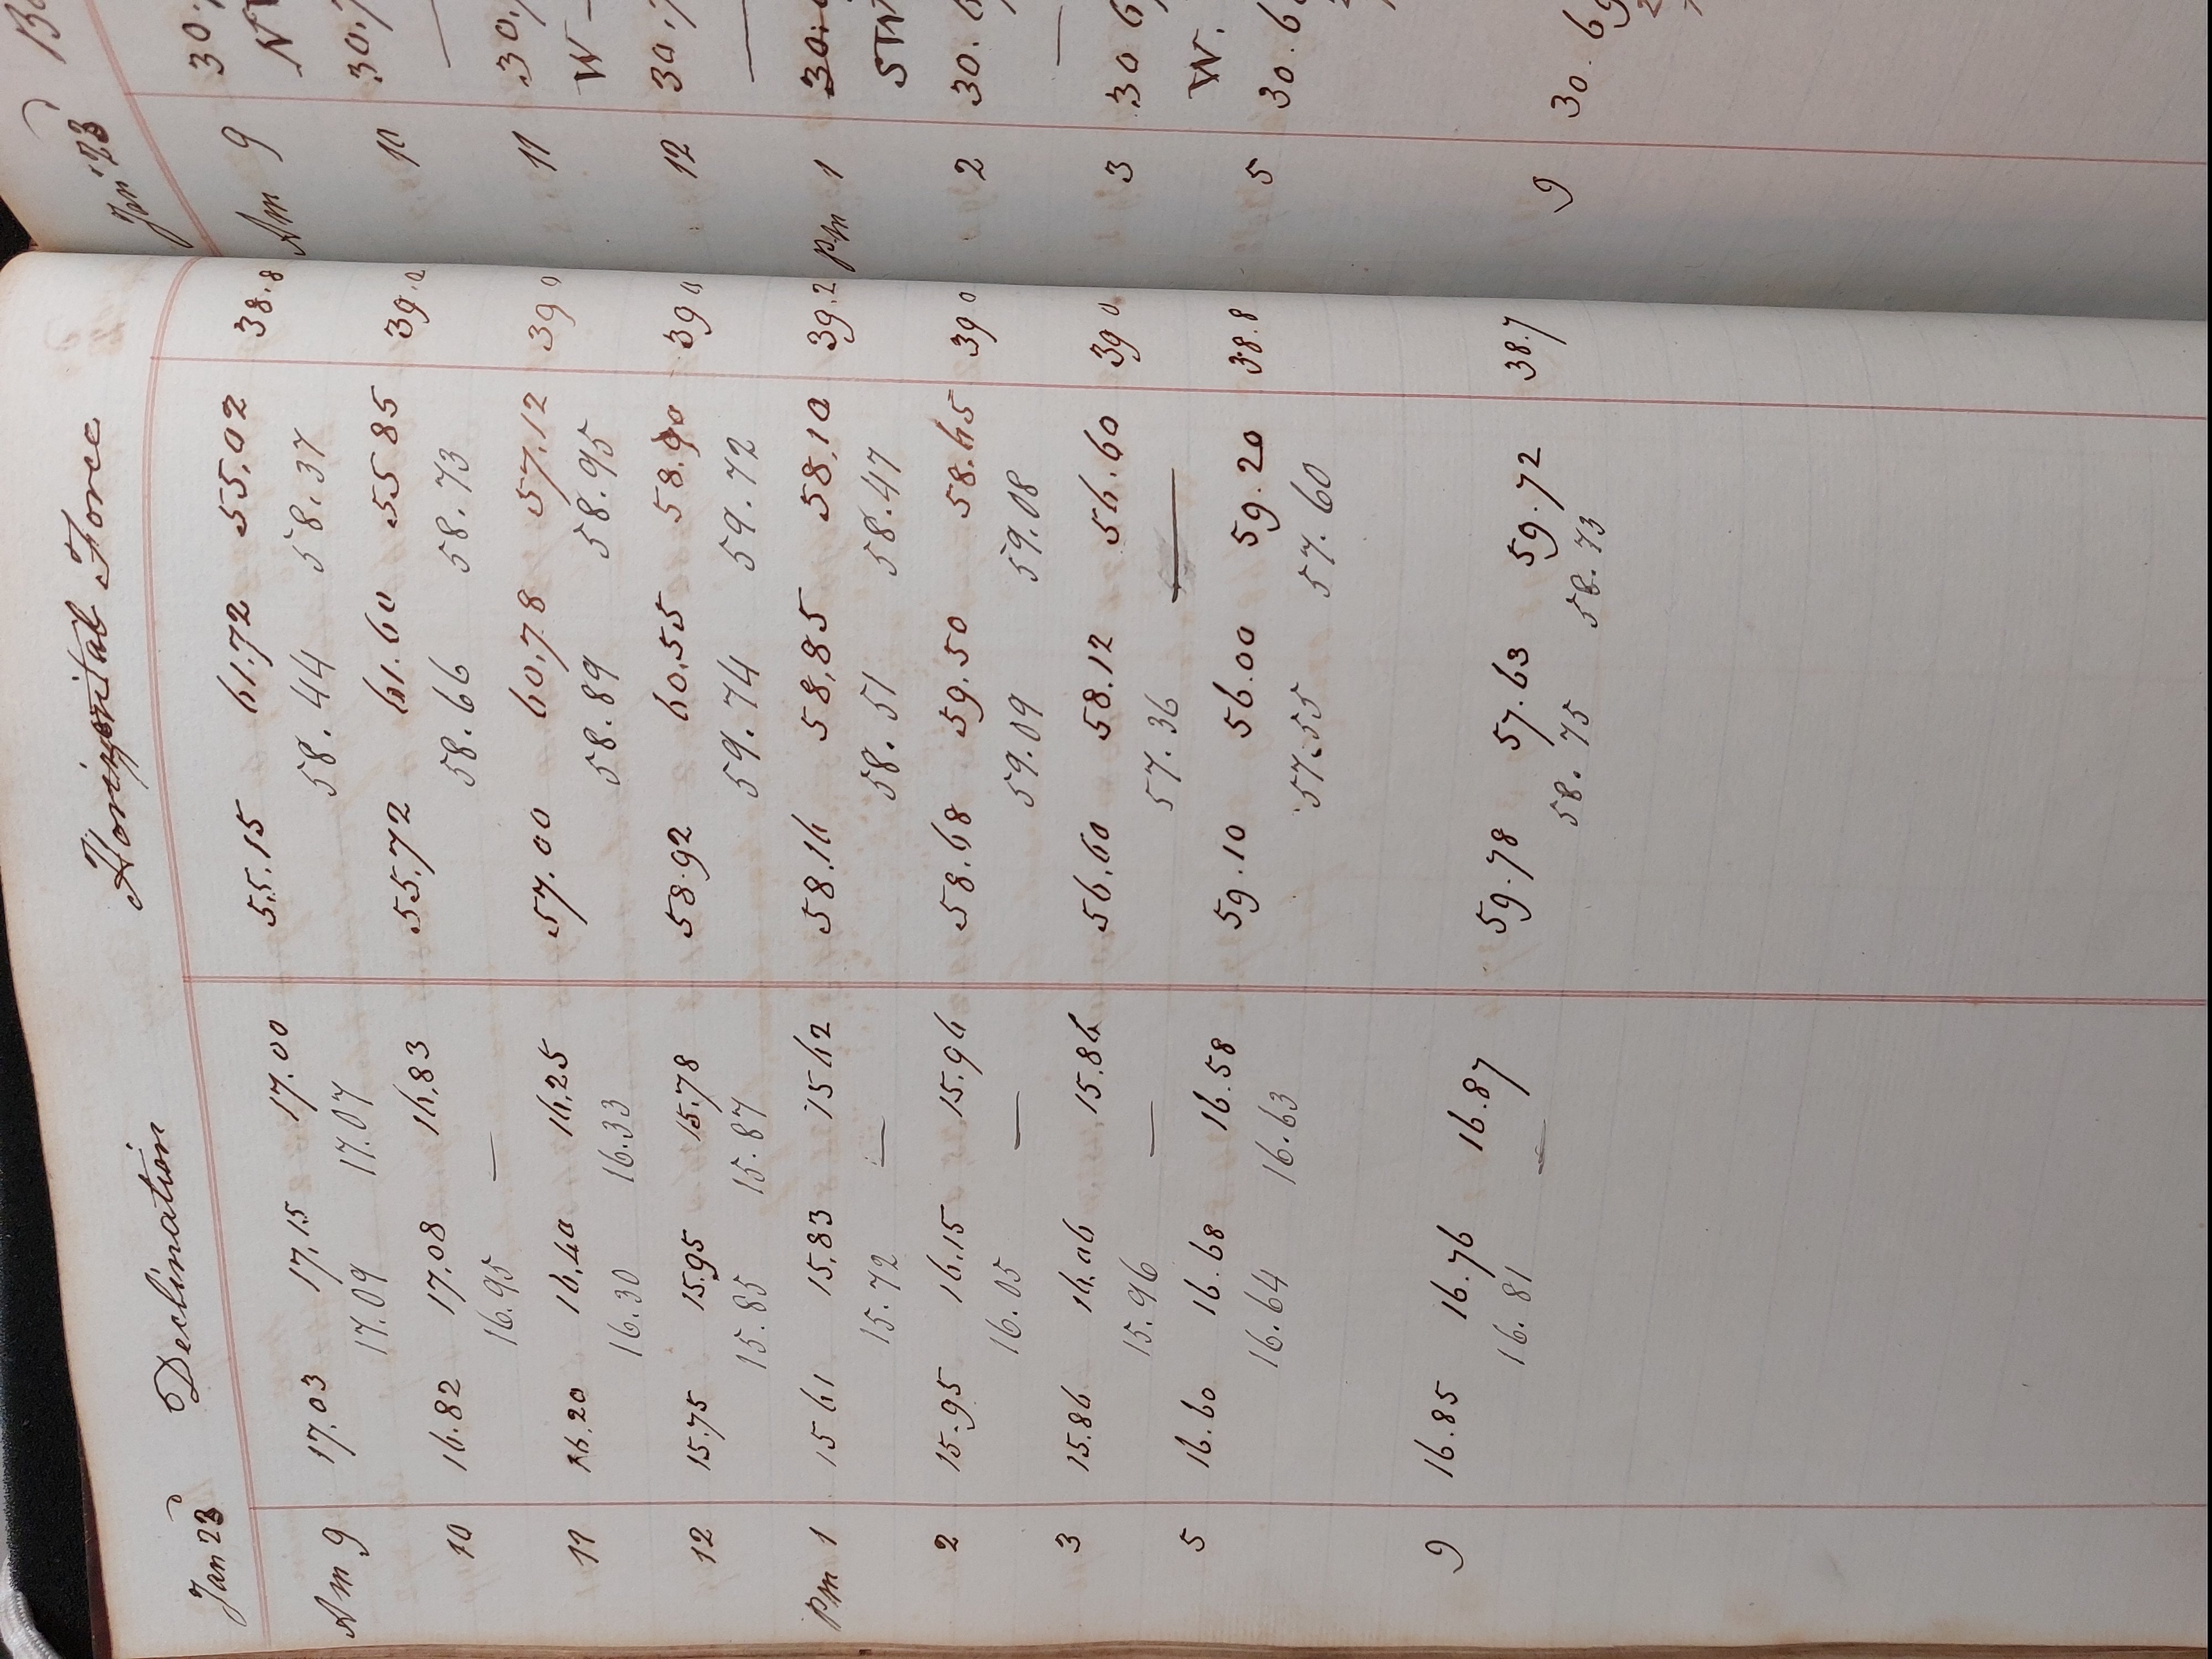 Jan 23d Declination Horizontal Force
Am 9 17.03 17.15 17.00 55.15 61.72 55.02 38.8
17.09 17.07 58.44 58.37
10 16.82 17.08 16.83 55.72 61.60 55 85 39.0
16.95 — 58.66 58.73
11 16.20 16.40 16.25 57.00 60.78 57.12 39 0
16.30 16.33 58.89 58.95
12 15.75 15.95 15.78 58.92 60.55 58.90 39 0
15.85 15.87 59.74 59.72
Pm 1 15 61 15.83 15 62 58.16 58.85 58.10 39.2
15.72 — 58.51 58.47
2 15.95 16.15 15.96 58.68 59.50 58.65 39 0
16.05 — 59.09 59.08
3 15.86 16.06 15.86 56.60 58.12 56.60 39 0
15.96 — 57.36 —
5 16.60 16.68 16.58 59.10 56.00 59.20 38.8
16.64 16.63 57.55 57.60
9 16.85 16.76 16.87 59.78 57.63 59.72 38.7
16.81 — 58.75 58.73
Jan 23d
Am 9 30.
10 30.7
—
11 30.
W —
12 30.7
—
Pm 1 30.
2 30.6
—
3 30 6
W.
5 30.6
9 30.69